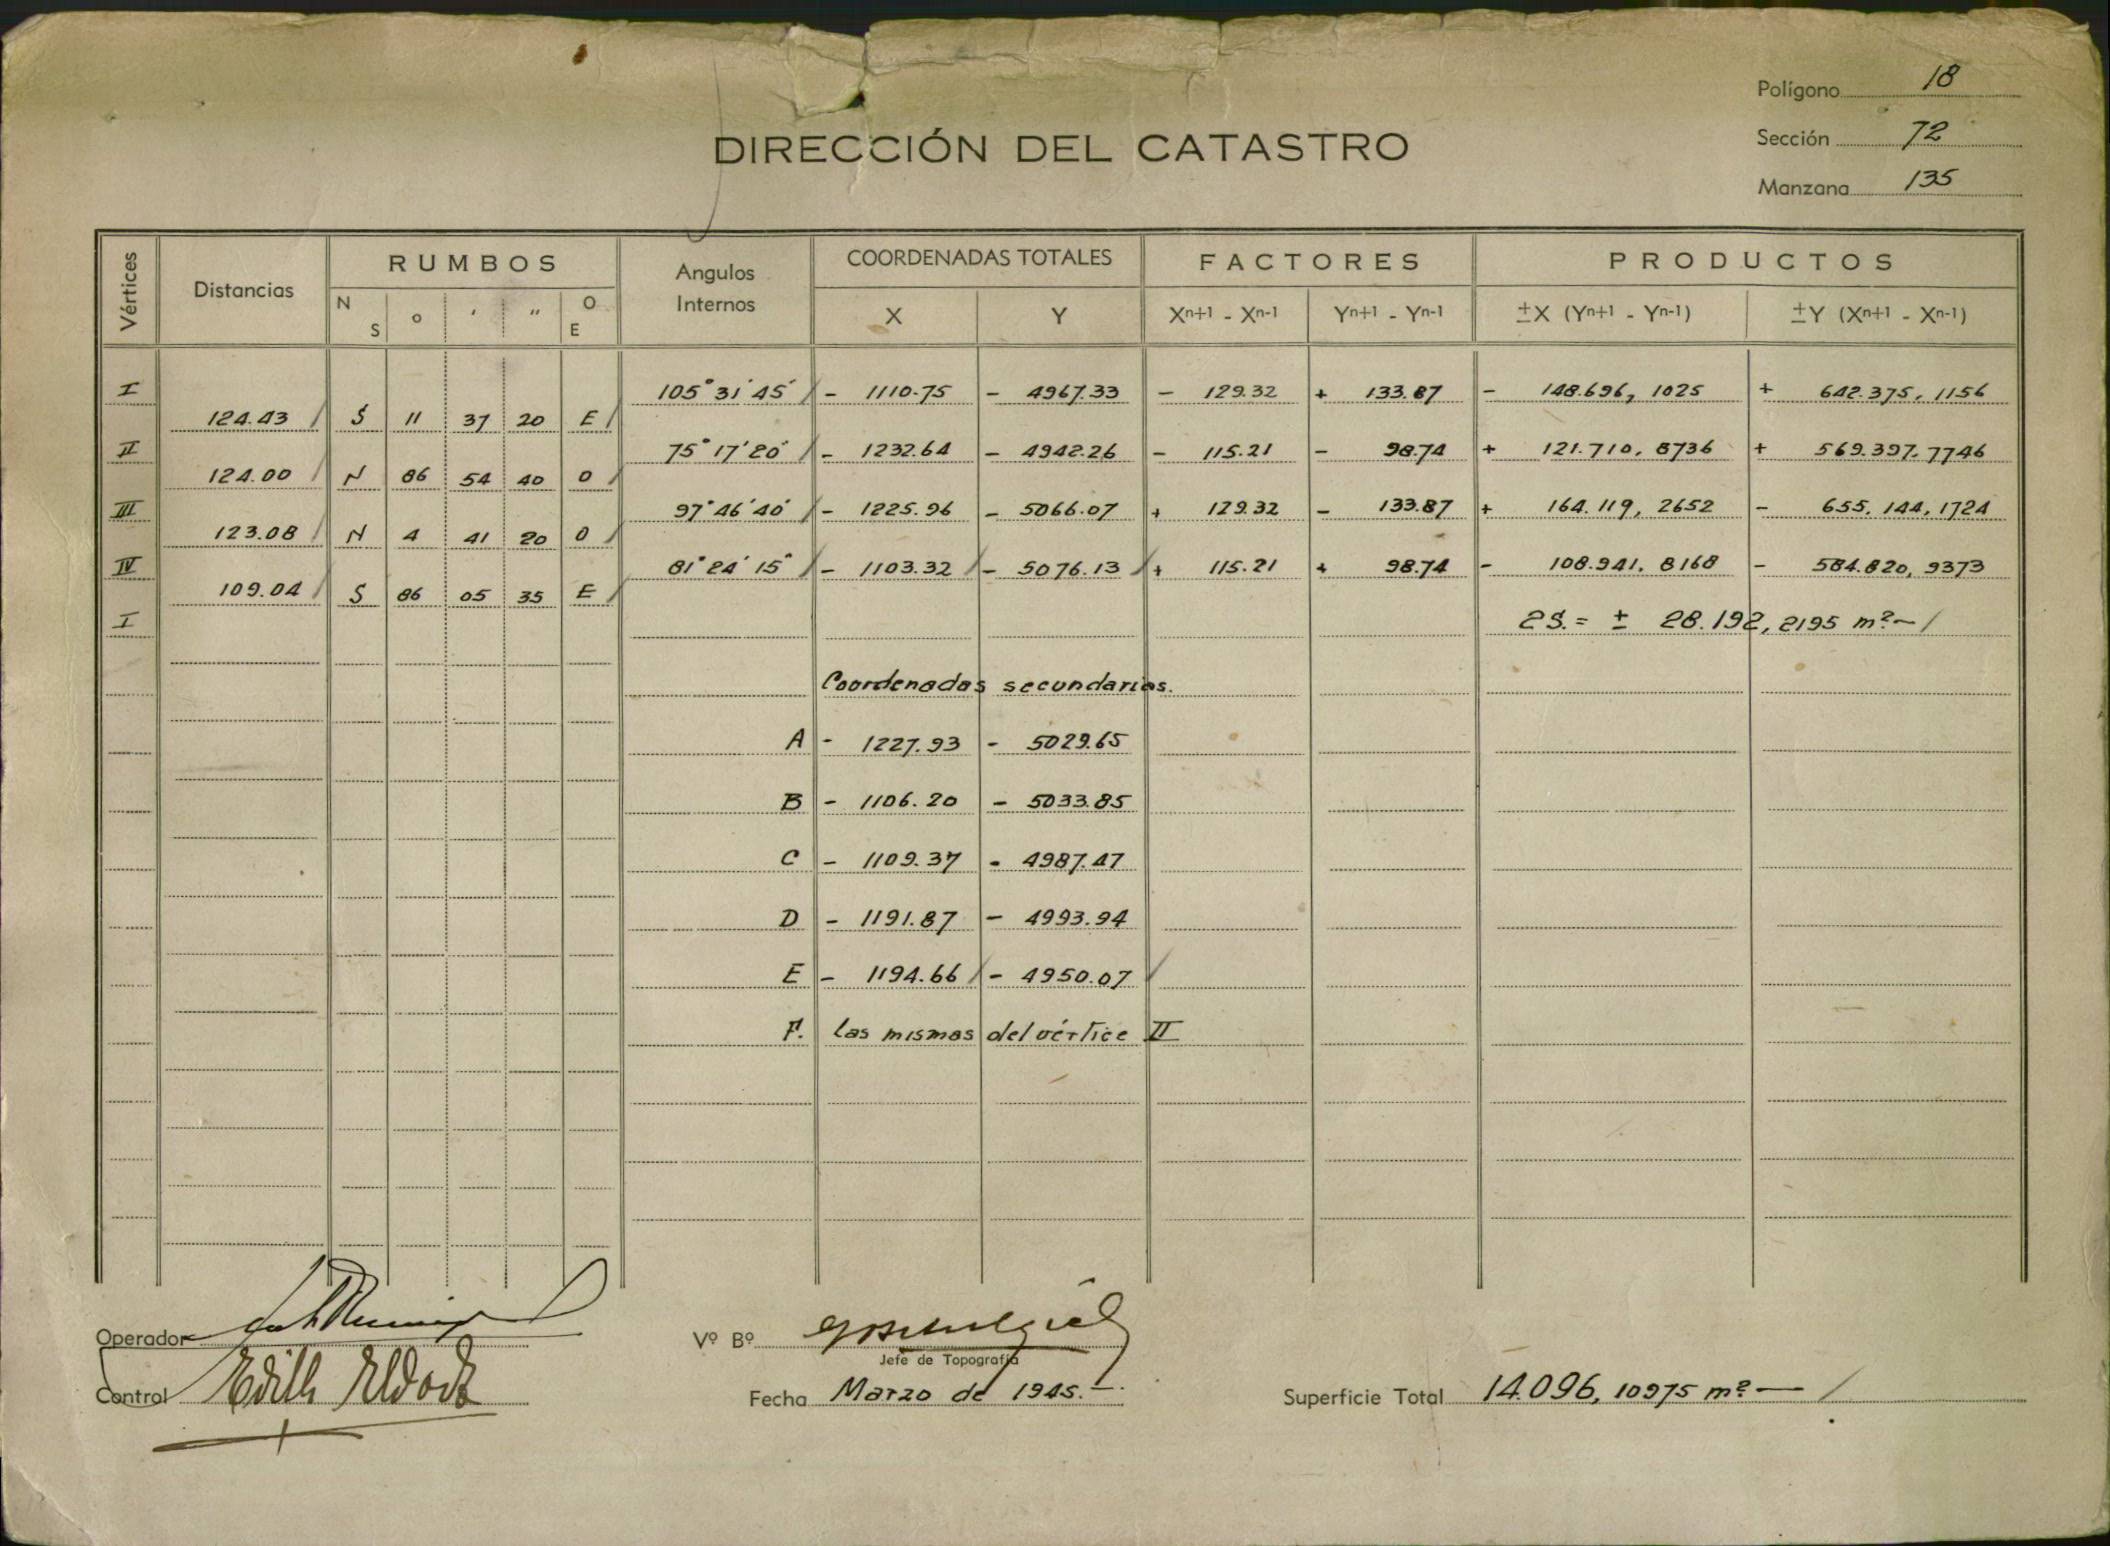 Polígono 18
Sección 72
Manzana 135
DIRECCIÓN DEL CATASTRO
Vértices Distancias RUMBOS Angulos Internos COORDENADAS TOTALES FACTORES PRODUCTOS
N S o ' " O E X Y Xn+1 - Xn-1 Yn+1 - Yn-1 ±X (Yn+1 - Yn-1) ±Y (Xn+1 - Xn-1)
I 105° 31' 45' / - 1110.75 - 4967.33 - 129.32 + 133.87 - 148.696, 1025 + 642.375, 1156
124.43 / S 11 37 20 E /
II 75° 17' 20' / - 1232.64 - 4942.26 - 115.21 - 98.74 + 121.710, 8736 + 569.397, 7746
124.00 / N 86 54 40 O /
III 97° 46' 40' / - 1225.96 - 5066.07 + 129.32 - 133.87 + 164.119, 2652 - 655.144, 1724
123.08 / N 4 41 20 O /
IV 81° 24' 15" / - 1103.32 / - 5076.13 / + 115.21 + 98.74 - 108.941, 8168 - 584.820, 9373
109.04 / S 86 05 35 E /
I 2S.= ± 28.192, 2195 m² - /
Coordenadas secundarias.
A - 1227.93 - 5029.65
B - 1106.20 - 5033.85
C - 1109.37 - 4987.47
D - 1191.87 - 4993.94
E - 1194.66 / - 4950.07 /
F. las mismas del vértice II
Operador
Vº Bº
Jefe de Topografía
Control Edith
Fecha Marzo de 1945.-
Superficie Total 14.096, 10975 m² — /